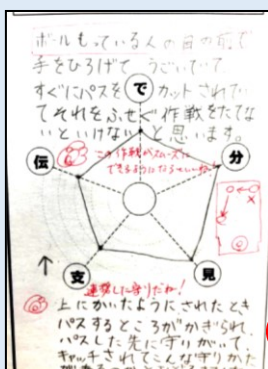 ボールもっている人の目の前で
手をひろげて うごいていて
すぐにパスをカットされてい
で
てそれをふせぐ作戦をたてな
いといけないと思います。
伝
この作戦がスムーズに
できるようになるといいね!
分
支
見
連携した守りだね!
上にかいたようにされたとき
パスするところがかぎられ、
パスした先に守りがいて、
キャッチされてこんな守りかた